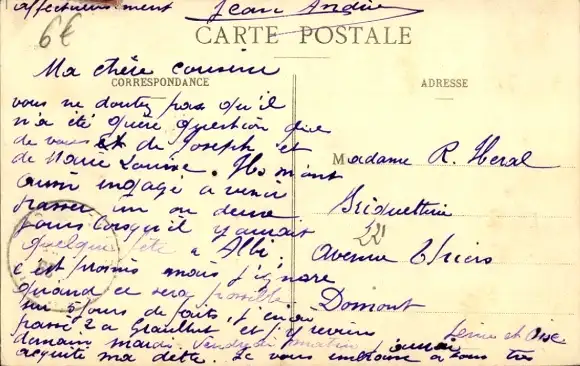 affectueusement Jean André
6€
CARTE POSTALE
CORRESPONDANCE
ADRESSE
Ma chère cousine
vous ne doutez pas qu'il
n'a été guère question que
de vous et de Joseph et
de Marie Louise. Ils m'ont
aussi engagé a venir
passer un ou deux
jours lorsqu'il y aurait
quelque fête a Albi,
c'est promis mais j'ignore
quand ce sera possible
sur 5 jours de j'en ai
passé 2 a Graulhet et j'y reviens
demain mardi. Vendredi matin j'aurai
acquité ma dette. Je vous embrasse a tous très
Madame R. Heral
Briquetterie
22
Avenue Thiers
Domont
Seine et Oise